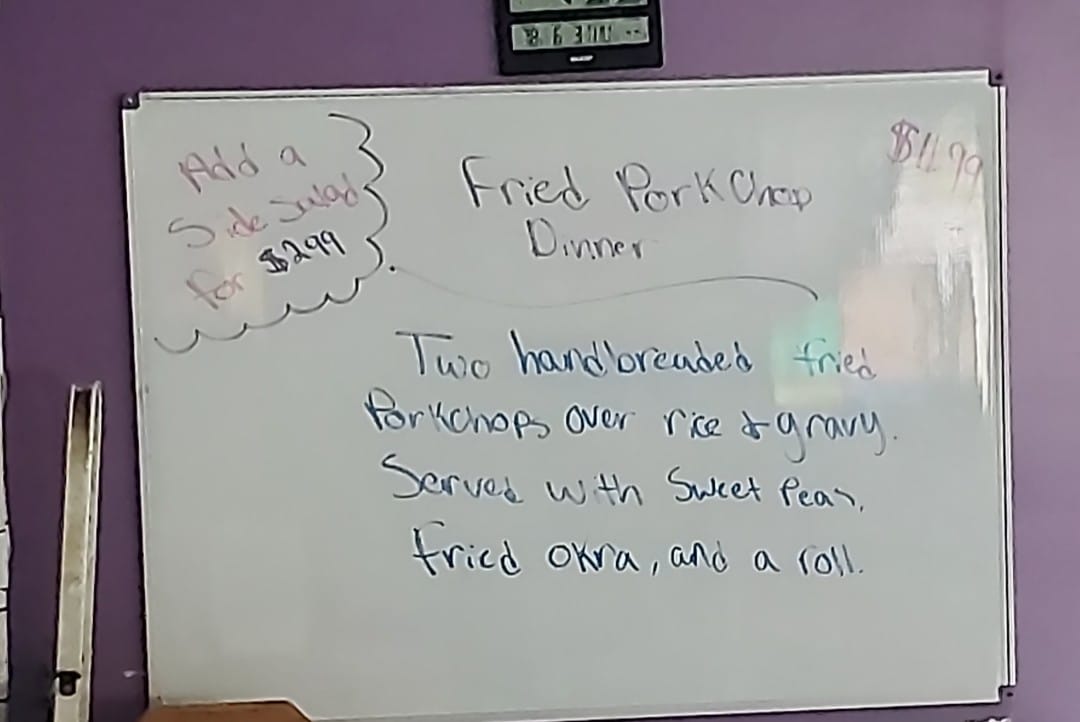 Add a
Side Salad
for $2.99
$11.99
Fried PorkChop
Dinner
Two handbreaded fried
Porkchops over rice & gravy.
Served with Sweet Peas,
fried okra, and a roll.